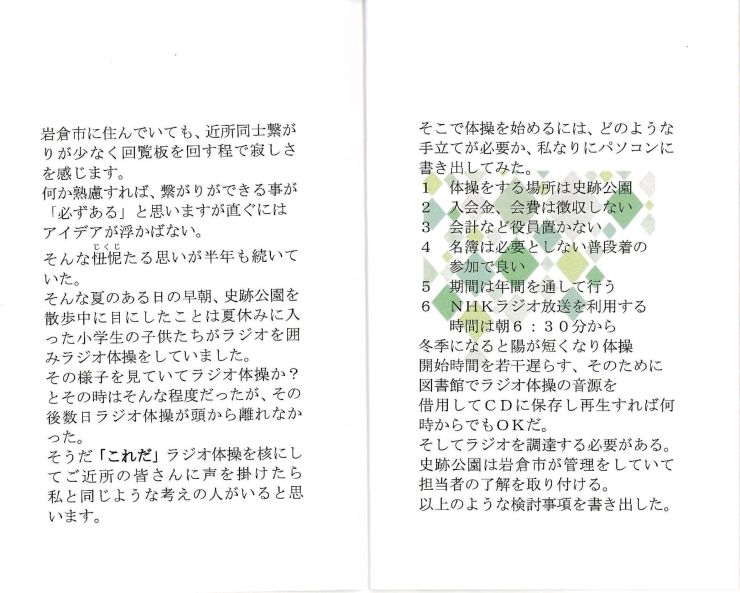 岩倉市に住んでいても、近所同士繋が
りが少なく回覧板を回す程で寂しさ
を感じます。
何か熟慮すれば、繋がりができる事が
「必ずある」と思いますが直ぐには
アイデアが浮かばない。
じくじ
そんな忸怩たる思いが半年も続いて
いた。
そんな夏のある日の早朝、史跡公園を
散歩中に目にしたことは夏休みに入
った小学生の子供たちがラジオを囲
みラジオ体操をしていました。
その様子を見ていてラジオ体操か？
とその時はそんな程度だったが、その
後数日ラジオ体操が頭から離れなか
った。
そうだ「これだ」ラジオ体操を核にし
てご近所の皆さんに声を掛けたら
私と同じような考えの人がいると思
います。
そこで体操を始めるには、どのような
手立てが必要か、私なりにパソコンに
書き出してみた。
１　体操をする場所は史跡公園
２　入会金、会費は徴収しない
３　会計など役員置かない
４　名簿は必要としない普段着の
参加で良い
５　期間は年間を通して行う
６　ＮＨＫラジオ放送を利用する
時間は朝６：３０分から
冬季になると陽が短くなり体操
開始時間を若干遅らす、そのために
図書館でラジオ体操の音源を
借用してＣＤに保存し再生すれば何
時からでもＯＫだ。
そしてラジオを調達する必要がある。
史跡公園は岩倉市が管理をしていて
担当者の了解を取り付ける。
以上のような検討事項を書き出した。